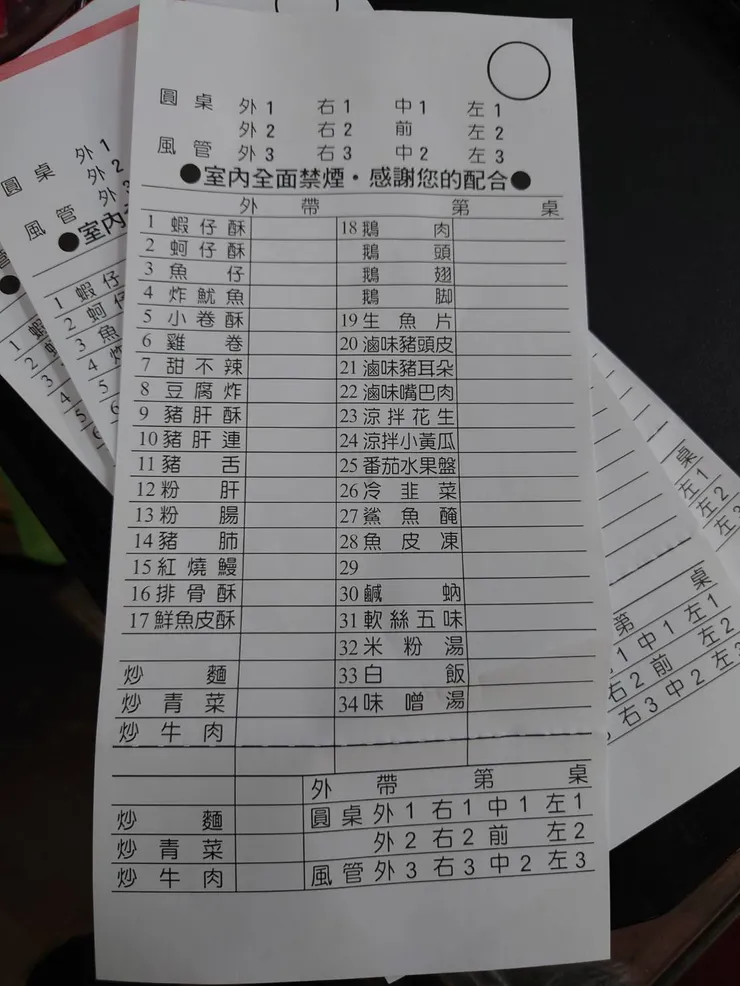 圓桌 外1 右1 中1 左1
外2 右2 前 左2
風管 外3 右3 中2 左3
●室內全面禁煙・感謝您的配合●
外帶 第 桌
1 蝦仔酥 18 鵝肉
2 蚵仔酥 鵝頭
3 魚仔 鵝翅
4 炸魷魚 鵝脚
5 小卷酥 19 生魚片
6 雞卷 20 滷味豬頭皮
7 甜不辣 21 滷味豬耳朵
8 豆腐炸 22 滷味嘴巴肉
9 豬肝酥 23 涼拌花生
10 豬肝連 24 涼拌小黃瓜
11 豬舌 25 番茄水果盤
12 粉肝 26 冷韭菜
13 粉腸 27 鯊魚醃
14 豬肺 28 魚皮凍
15 紅燒鰻 29
16 排骨酥 30 鹹蚋
17 鮮魚皮酥 31 軟絲五味
32 米粉湯
炒麵 33 白飯
炒青菜 34 味噌湯
炒牛肉
外帶 第 桌
炒麵 圓桌 外1 右1 中1 左1
炒青菜 外2 右2 前 左2
炒牛肉 風管 外3 右3 中2 左3
圓桌 外1
外2
風管 外3
●室內
1 蝦仔
2 蚵仔
3 魚
4 炸
5
6
1 蝦
2
3
4
5
6
桌
左1
左2
左3
第 桌
1 中1 左1
右2 前 左2
右3 中2 左3